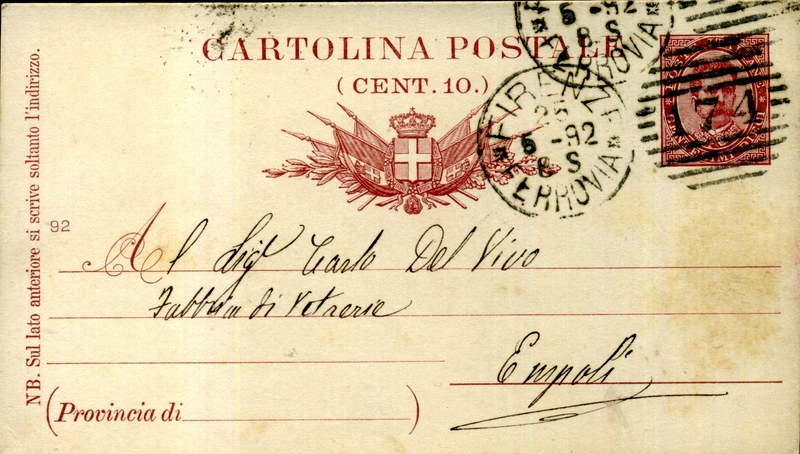 CARTOLINA POSTALE
(CENT. 10.)
5 -92
8 S
FERROVIA
FIRENZE
25
5 -92
8 S
FERROVIA
174
NB. Sul lato anteriore si scrive soltanto l'indirizzo.
92
Al Sigr Carlo Del Vivo
Fabbrica di Vetrerie
Empoli
(Provincia di )